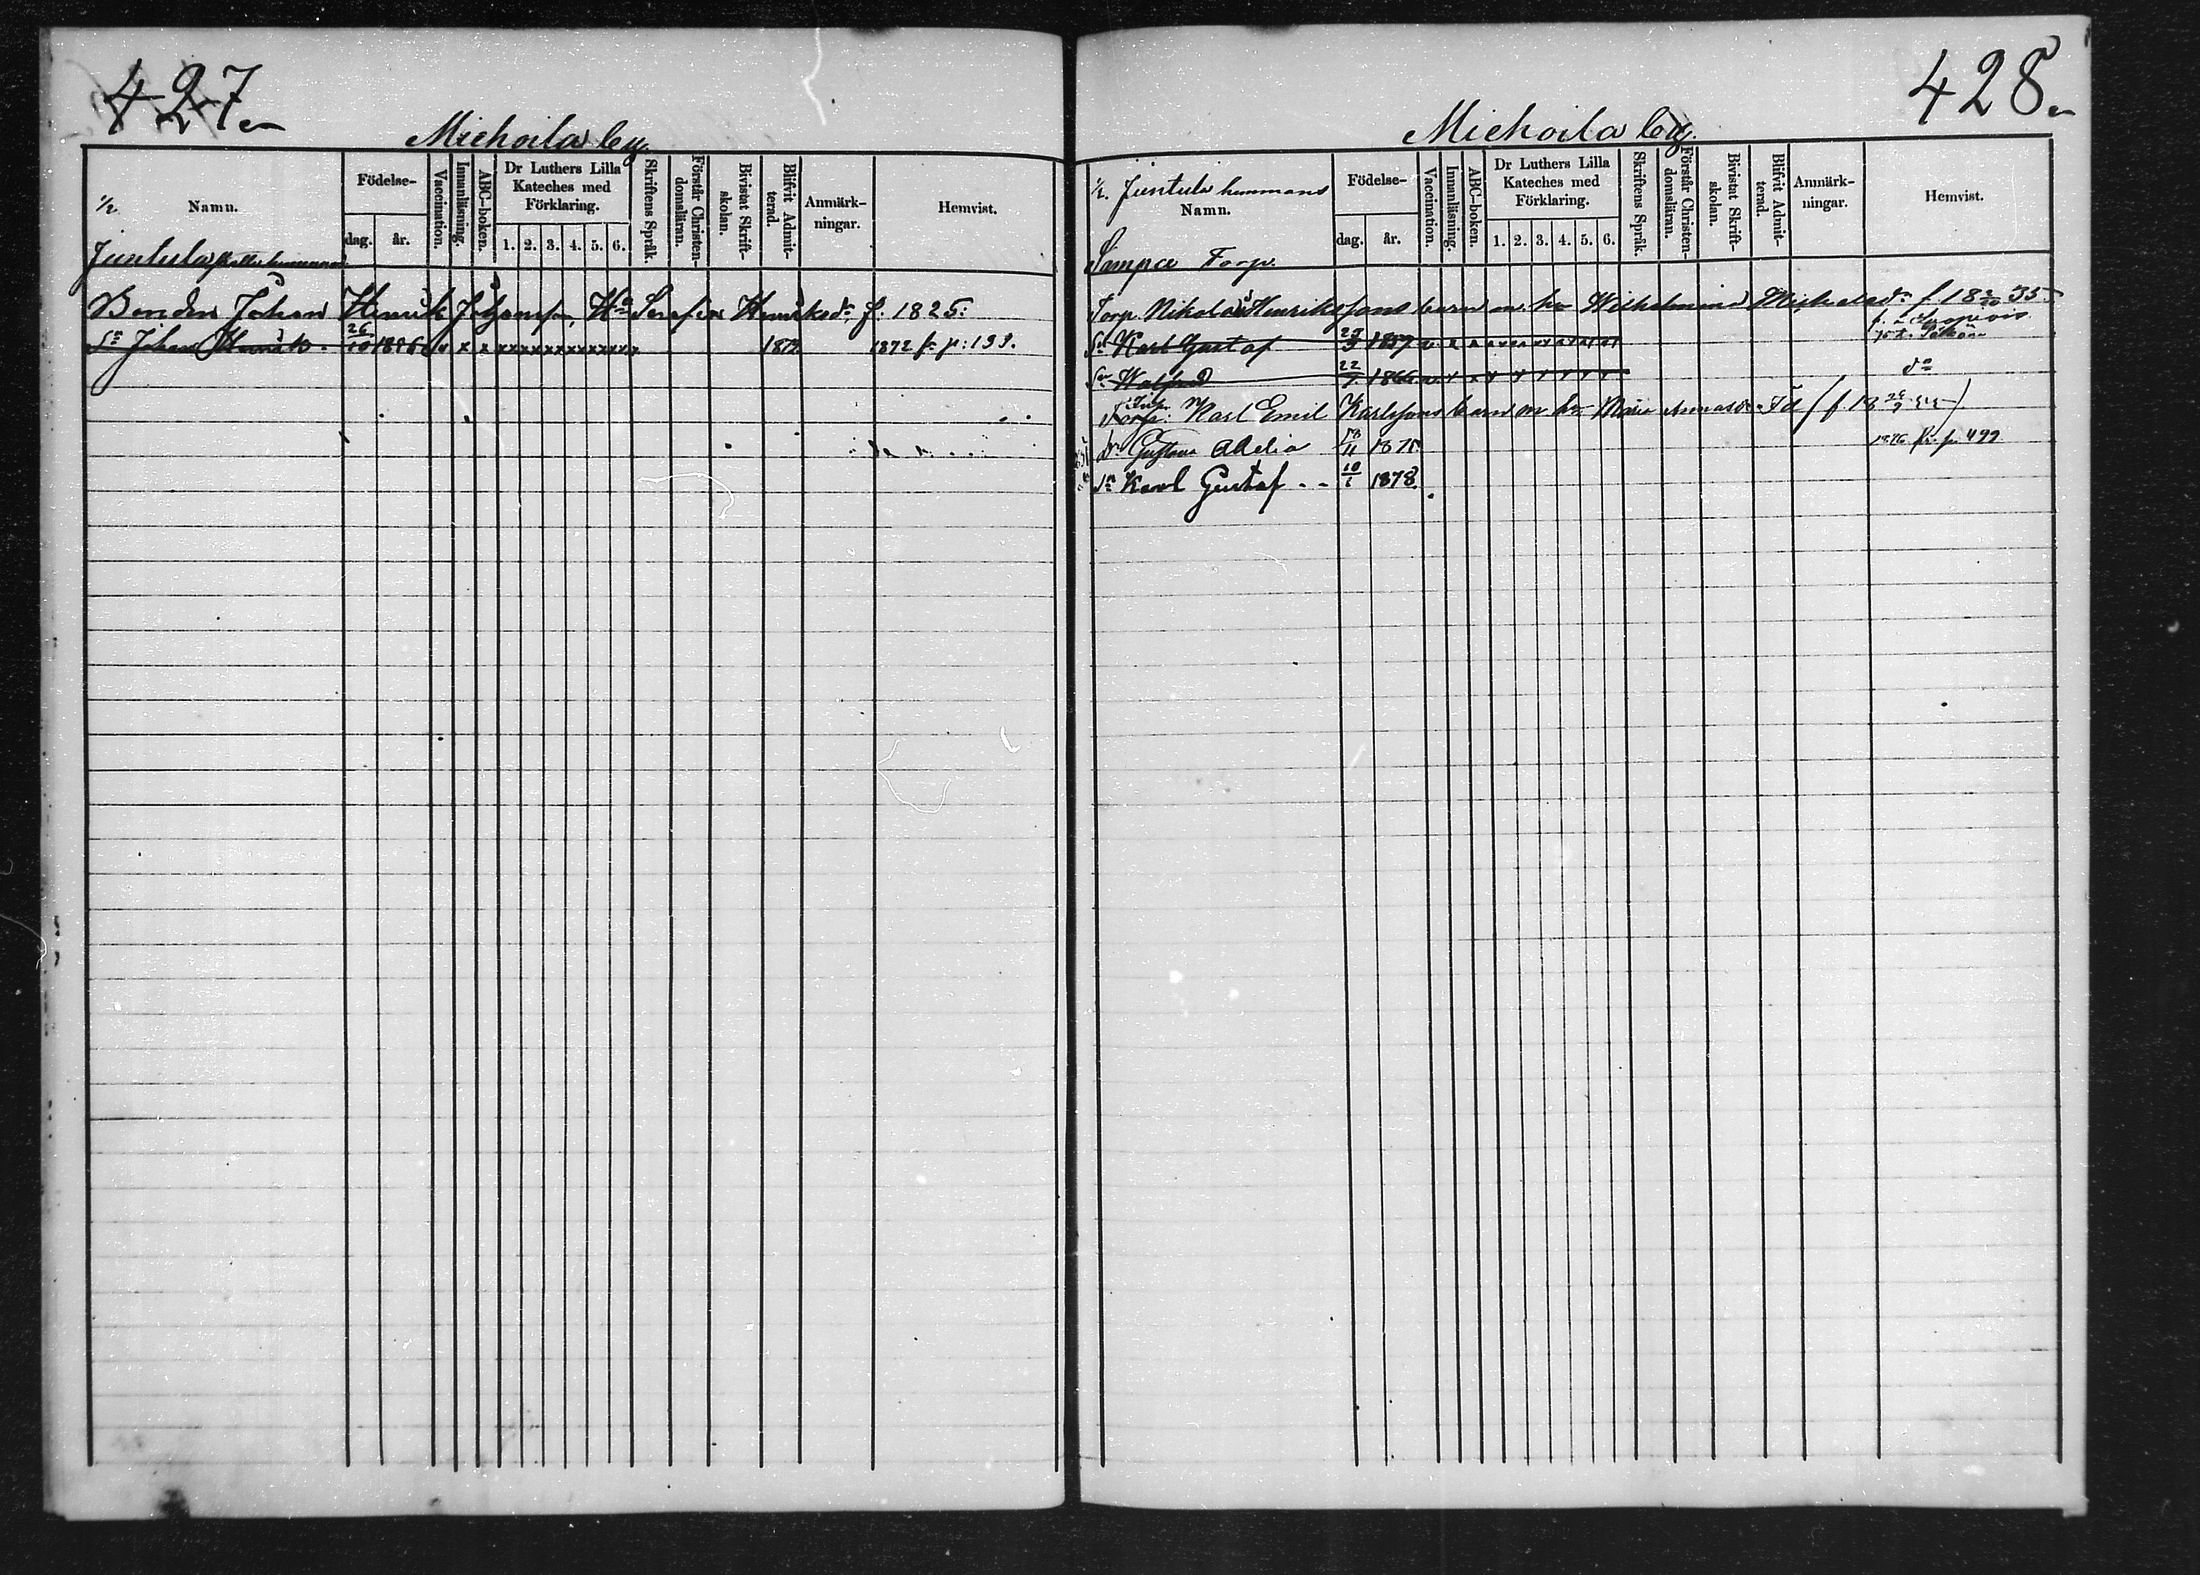 427
Michoila by.
½ Namn.
Födelse-
dag. år.
Vaccination.
Innanläsning.
ABC-boken.
Dr Luthers Lilla
Kateches med
Förklaring.
1. 2. 3. 4. 5. 6.
Skriftens Språk.
Förstår Christen-
domsläran.
Bivistat Skrift-
skolan.
Blifvit Admit-
terad.
Anmärk-
ningar.
Hemvist.
Juntula
Bonden Johan Henrik Johansson, Ha Serafia Henriksdr f. 1825:
Sn Johan Henrik 26/10 1856 v x x xxxxxxxxxxxx 1872 fr. p: 199.
428
Michoila by.
½ Juntula hemmans
Namn.
Födelse-
dag. år.
Vaccination.
Innanläsning.
ABC-boken.
Dr Luthers Lilla
Kateches med
Förklaring.
1. 2. 3. 4. 5. 6.
Skriftens Språk.
Förstår Christen-
domsläran.
Bivistat Skrift-
skolan.
Blifvit Admit-
terad.
Anmärk-
ningar.
Hemvist.
Sampa Torp.
Torp. Nikolai Henrikssons barn m. h. Wilhelmina Michelsdr f. 18 35
Sn Karl Gustaf 1859
Sn Walfrid 22/7 1866 do
Torp. Karl Emil Karlssons barn m h. Maria
dr Gustava Adelia 1875 1876 fr. p. 499
Sn Karl Gustaf 10/1 1878.